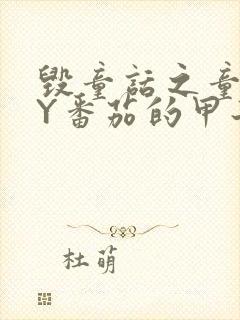 毁童话之童
Y番茄的甲
杜萌